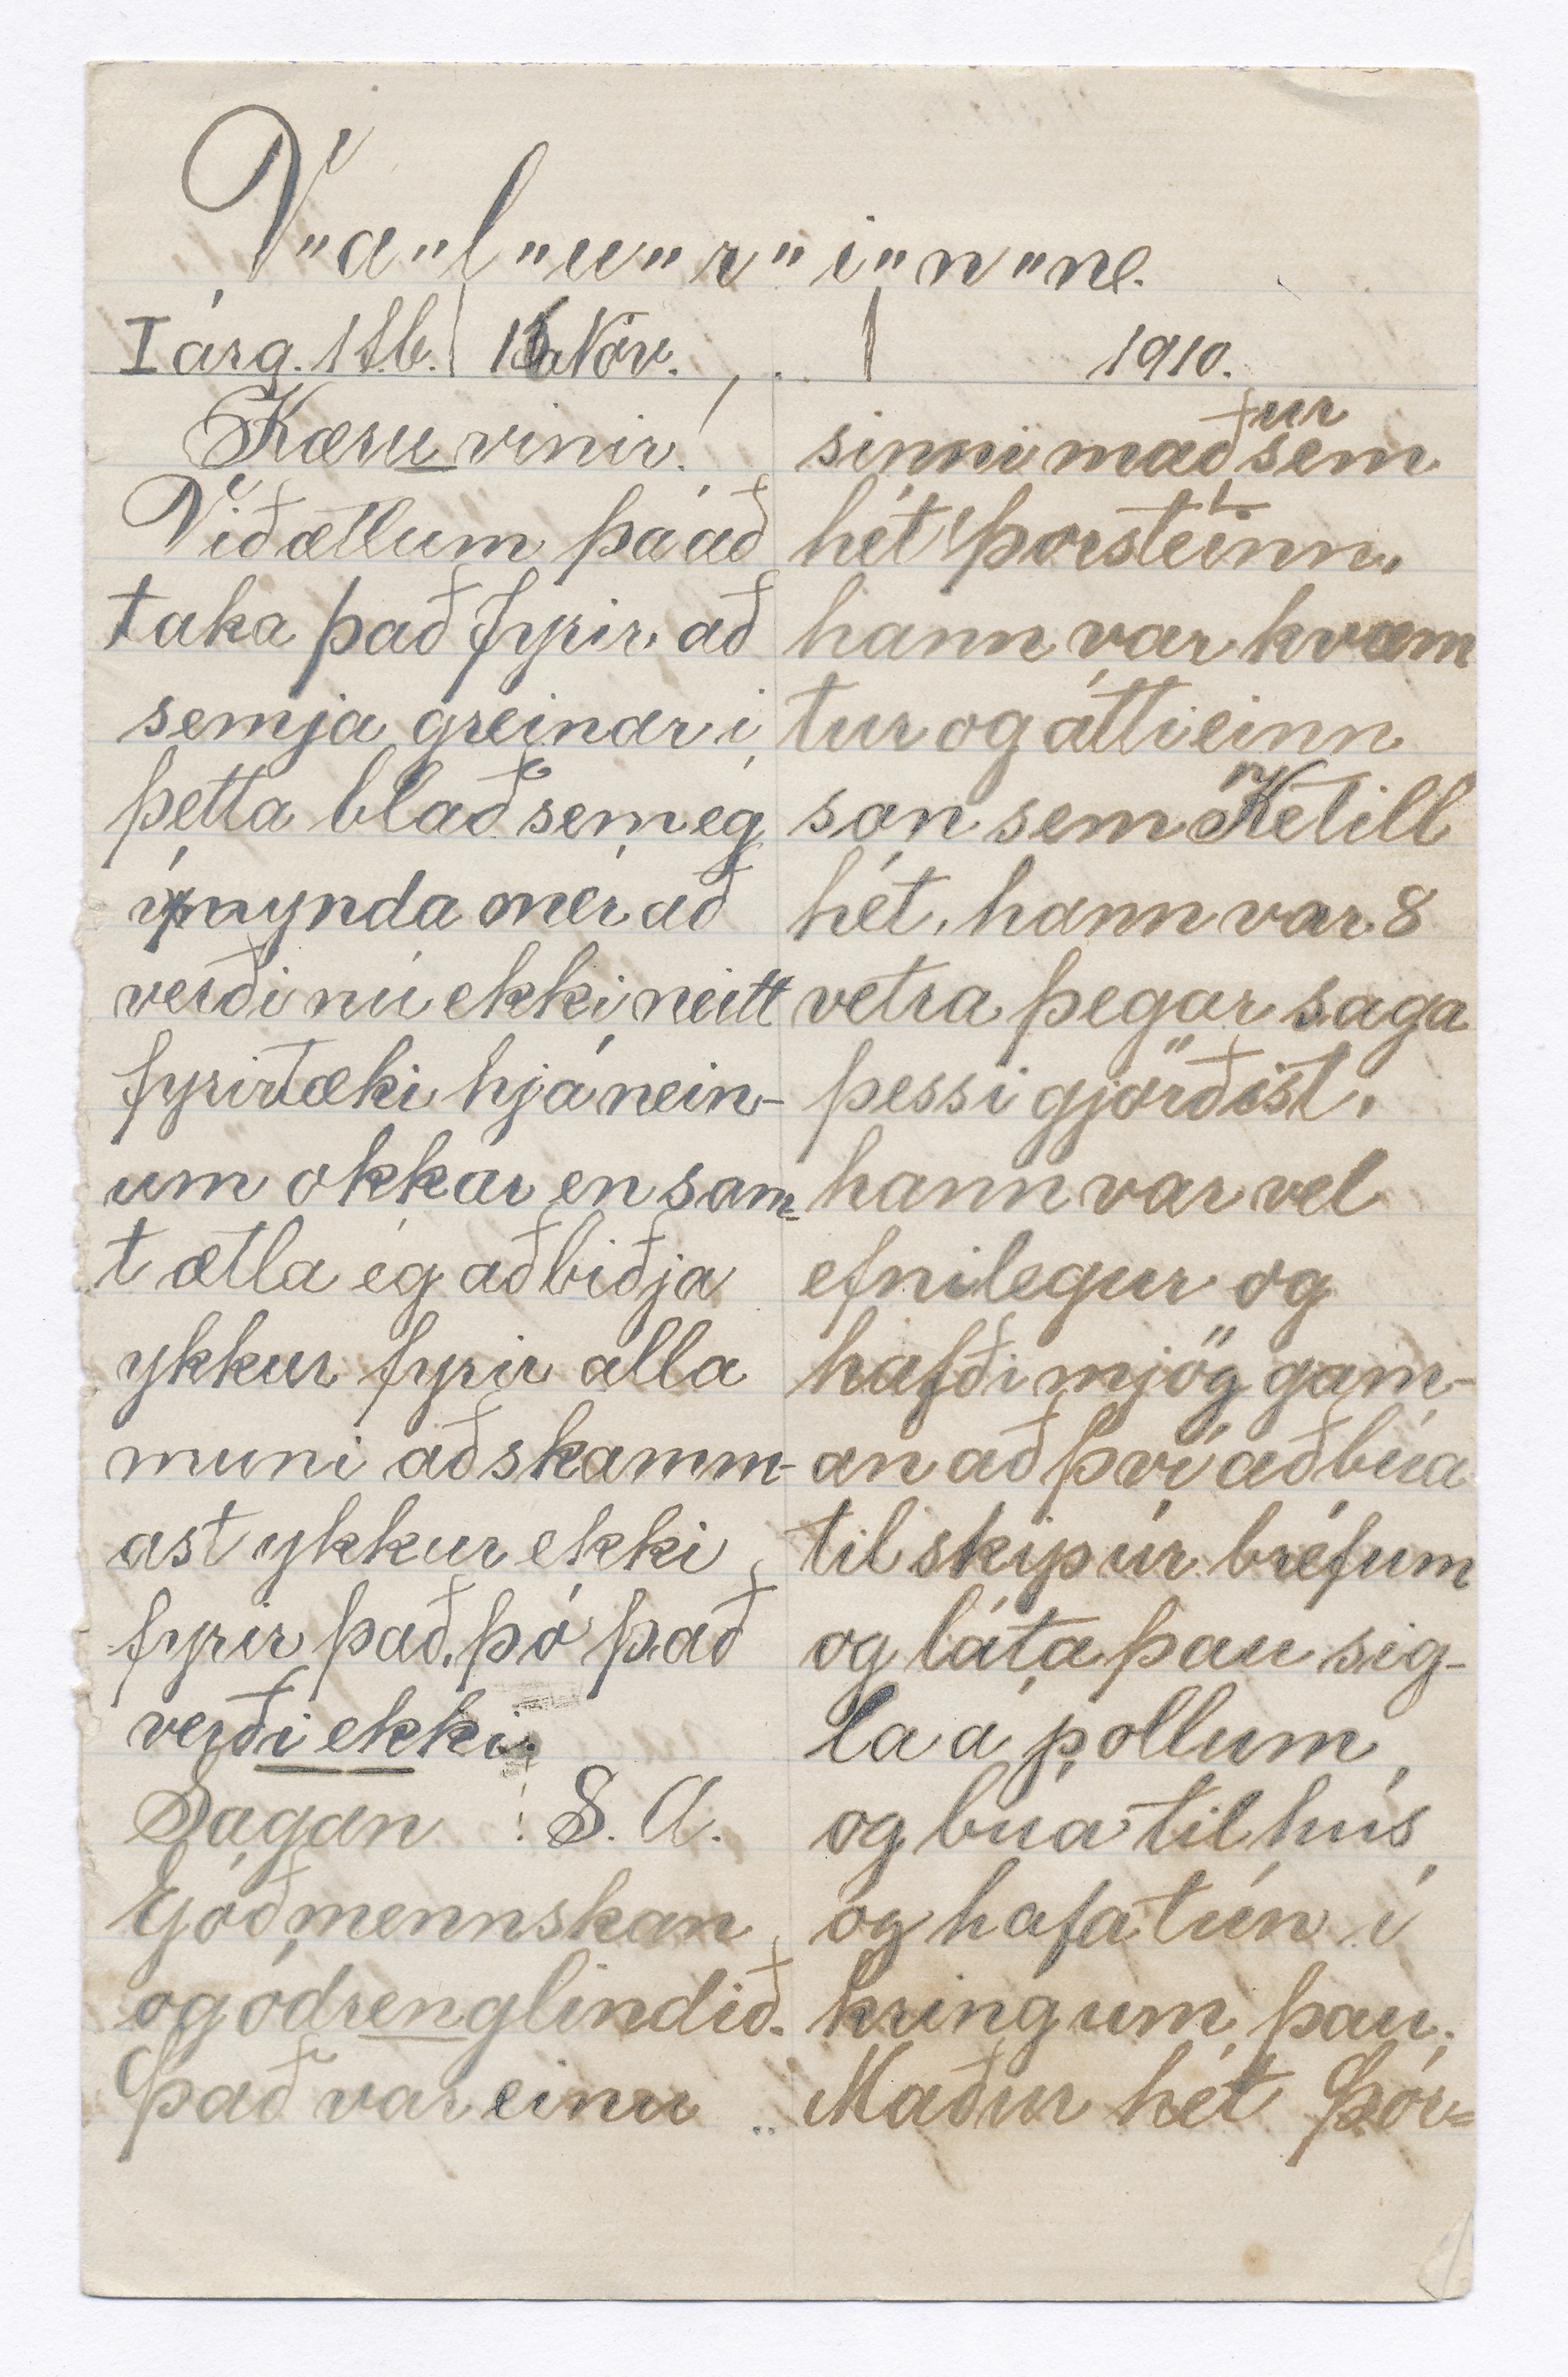 V"a"l"u"r"i"n"n.
I árg. 1 tb. Nóv. 1910.
Kæru vinir!
Við ætlum þá að
taka það fyrir, að
semja greinar í
þetta blað sem ég
ímynda mér að
verði nú ekki neitt
fyrirtæki hjá nein-
um okkar en sam=
t ætla ég að biðja
ykkur fyrir alla
muni að skamm-
ast ykkur ekki
fyrir það, þó það
verði ekki.
Sagan S. A.
Góðmennskan
og ódrenglindið.
Það var einu
sinni maður sem
hét Þorsteinn,
hann var kvæm
tur og átti einn
son sem Ketill
hét, hann var 8
vetra þegar saga
þessi gjörðist,
hann var vel
efnilegur og
hafði mjög gam-
an að því að búa
til skip úr bréfum
og láta þau sig-
la á pollum,
og búa til hús,
og hafa tún í
kringum þau.
Maður hét Þór=